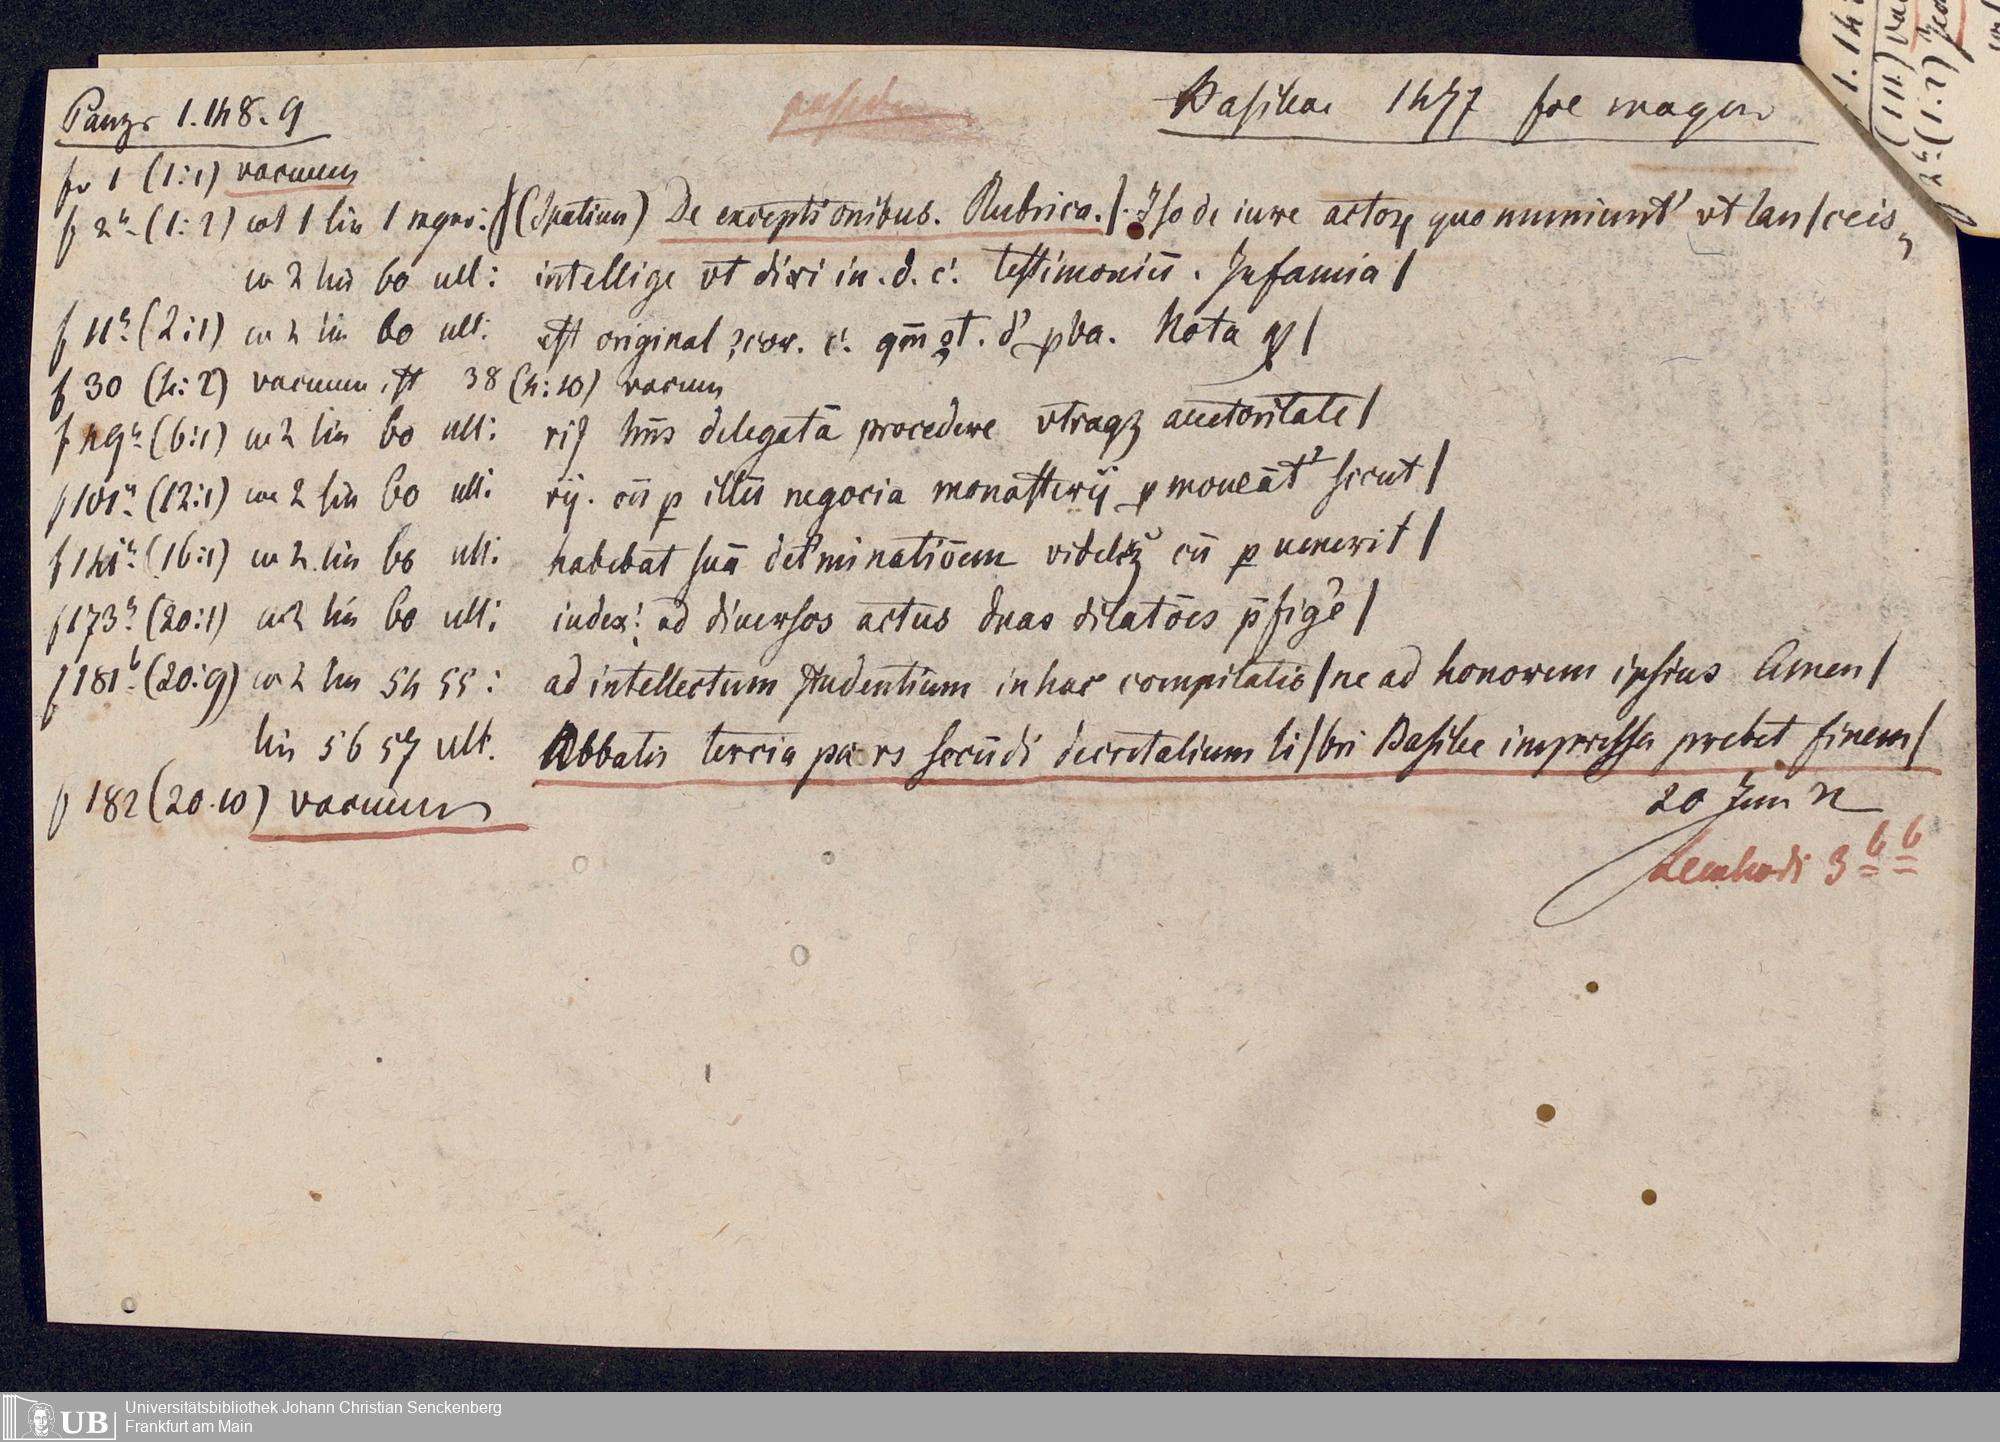 Panzr 1.148.9
Basileae 1477 fol magno
fo 1 (1:1) vacuum
f 2ª (1:2) col 1 lin 1 rugro: (Spatium) De exceptionibus. Rubrica.| so de iure actoꝝ quo muniunt' vt lan|ceis
co 2 lin 60 ult: intellige vt dixi in. d. c'. testimoniū. Infamia|
f 11ª (2:1) co 2 lin 60 ult: est original c'. Nota
f 30 (4:2) vacuum, ft 38 (4:10) vacuum
f 49ª (6:1) co 2 lin 60 ult: delegatā procedere vtraqꝫ auctoritate|
f 101ª (12:1) co 2 lin 60 ult: rij. cū p illū negocia monasterij p moueāt' sicut|
f 141ª (16:1) co 2 lin 60 ult: habebat suā det'minatiōem videlꝫ cū p uenerit|
f 173ª (20:1) co 2 lin 60 ult: iudex: ad diuersos actus duas dilatōes p̄fig'e|
f 181b (20:9) co 2 lin 54 55: ad intellectum studentium in hac compilatio|ne ad honorem ipsius Amen|
lin 56 57 ult. Abbatis tercia pars secūdi decretalium li|bri Basilee impressa prebet finem|
f 182 (20.10) vacuum
20 Jun
3
Universitätsbibliothek Johann Christian Senckenberg
Frankfurt am Main
UB